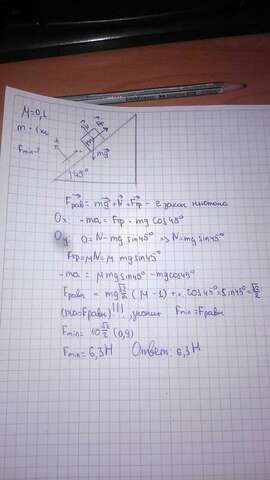 μ=0,1
m = 1 кг
Fmin-?
N
Fтр
mg
45°
Fрав = mg + N + Fтр - 2 закон Ньютона
Ox: -ma = Fтр - mg cos45°
Oy: 0=N-mg sin45° => N=mg sin45°
Fтр=μN=μ mg sin45°
-ma = μ mg sin45° - mg cos45°
Fравн = mg √2/2 (μ-1) т.к. cos45°=sin45°=√2/2
(ma=Fравн)!!!, значит Fmin=Fравн
Fmin= 10 √2/2 (0,9)
Fmin= 6,3Н Ответ: 6,3Н